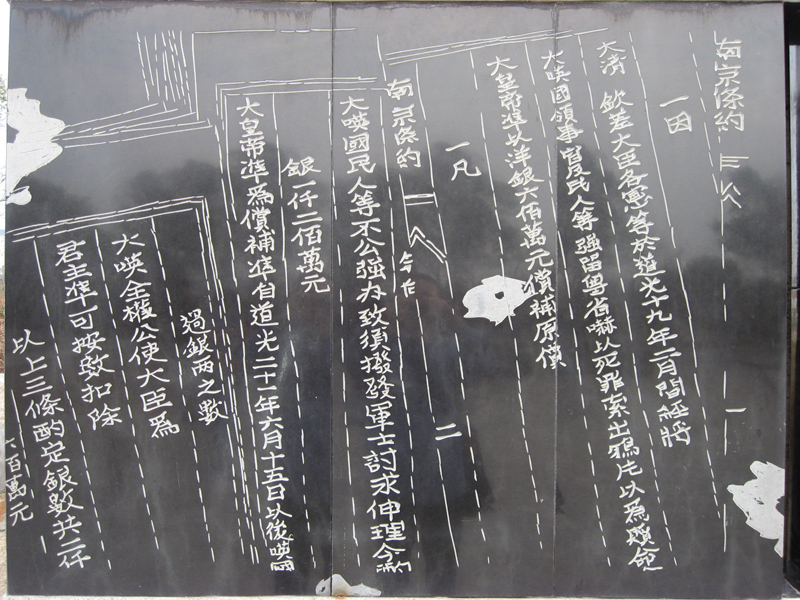 南京條約 三
一因
大清 欽差大臣各憲等於道光十九年二月間經將
大嘆國領事官及民人等強留粵省嚇以死罪索出鴉片以為贖命
大皇帝準以洋銀六佰萬元償補原價
一凡
二
南京條約
大嘆國民人等不公強办致須撥發軍士討求伸理今酌
銀一仟二佰萬元
大皇帝準為償補準自道光二十一年六月十五日以後嘆國
過銀兩之數
大嘆全權公使大臣為
君主準可按數扣除
以上三條酌定銀數共二仟
百萬元